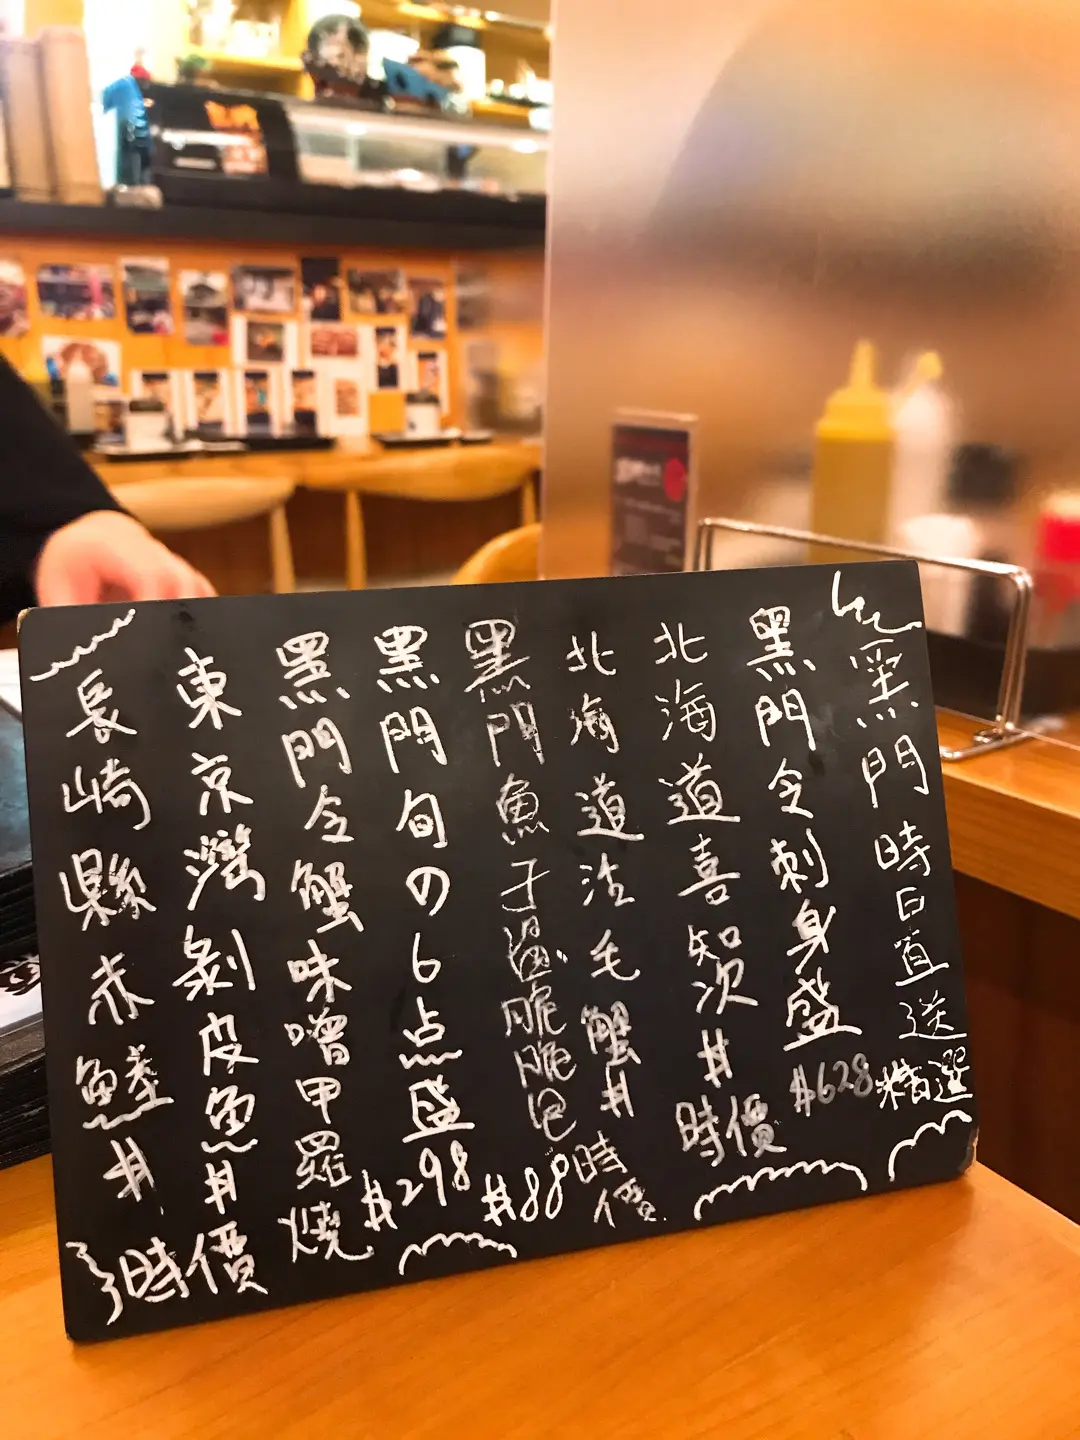 黑門時日直送精選
黑門令刺身盛 $628
北海道喜知次 $ 時價
北海道活毛蟹 $ 時價
黑門魚子溫脆脆泡 $88
黑門旬の6点盛 $298
黑門令蟹味噌甲羅燒
東京灣剝皮魚 $
長崎縣赤鱆 $
時價